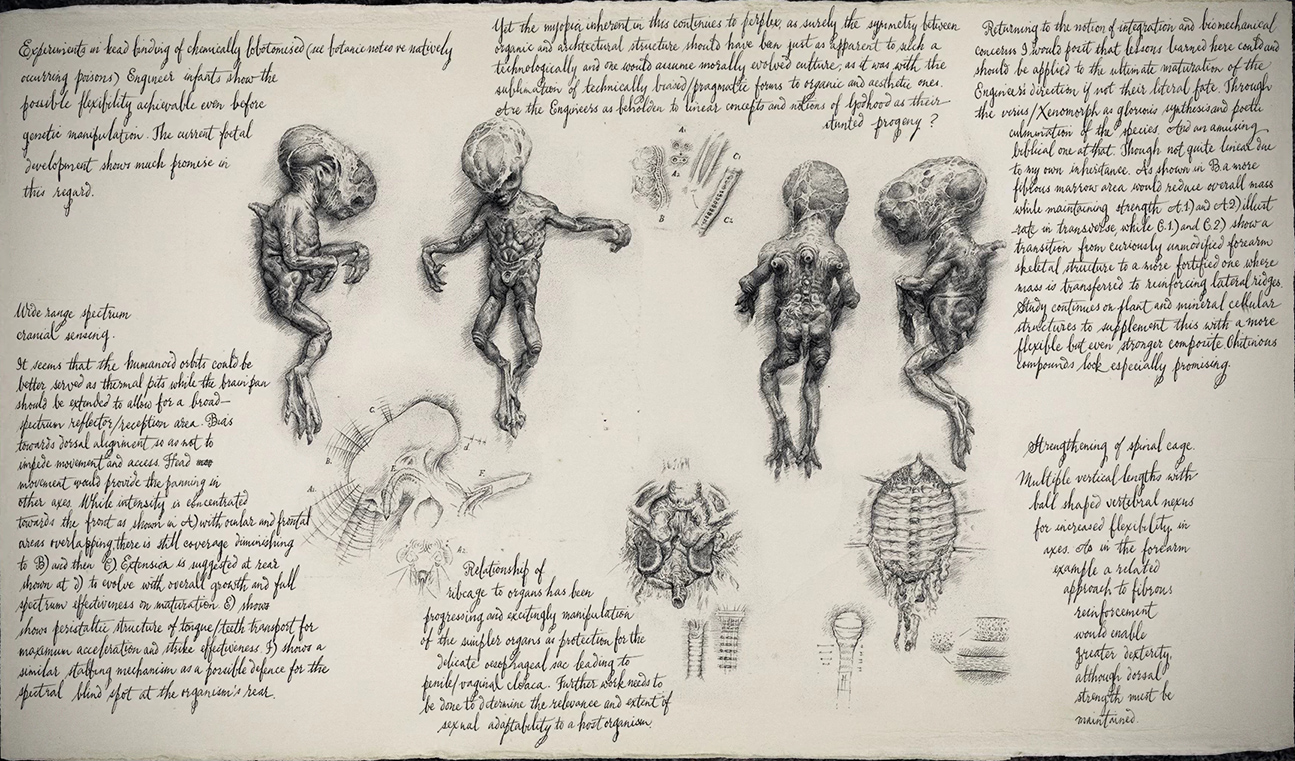 Experiments in head binding of chemically lobotomised (see botanic notes re natively
occurring poisons) Engineer infants show the
possible flexibility achievable even before
genetic manipulation. The current foetal
development shows much promise in
this regard.
Yet the myopia inherent in this continues to perplex, as surely the symmetry between
organic and architectural structure, should have been just as apparent to such a
technologically and one would assume morally evolved culture, as it was with the
sublimation of technically biased/pragmatic forms to organic and aesthetic ones.
Are the Engineers as beholden to linear concepts and notions of Godhood as their
stunted progeny?
Returning to the notion of integration and biomechanical
concerns I would posit that lessons learned here could and
should be applied to the ultimate maturation of the
Engineer's direction if not their literal fate. Through
the virus/Xenomorph as glorious synthesis and poetic
culmination of the species. And an amusing
biblical one at that. Though not quite linear due
to my own inheritance. As shown in B. a more
fibrous marrow area would reduce overall mass
while maintaining strength A.1) and A.2) illust
-rate in transverse, while C.1) and C.2) show a
transition from curiously unmodified forearm
skeletal structure to a more fortified one where
mass is transferred to reinforcing lateral ridges.
Study continues on plant and mineral cellular
structures to supplement this with a more
flexible but even stronger composite Chitinous
compounds look especially promising.
A1
A2
B
C1
C2
Wide range spectrum
cranial sensing.
It seems that the humanoid orbits could be
better served as thermal pits while the brain pan
should be extended to allow for a broad-
spectrum reflector/reception area. Bias
towards dorsal alignment so as not to
impede movement and access. Head
movement would provide the panning in
other axes. While intensity is concentrated
towards the front as shown in A) with ocular and frontal
areas overlapping, there is still coverage diminishing
to B) and then C) Extension is suggested at rear
shown at d) to evolve with overall growth and full
spectrum effectiveness on maturation. E) shows
shows peristaltic structure of tongue/teeth transport for
maximum acceleration and strike effectiveness. F) shows a
similar stabbing mechanism as a possible defence for the
spectral blind spot at the organism's rear.
C.
B.
A1
d
E
F
A2
Relationship of
ribcage to organs has been
progressing and excitingly manipulation
of the simpler organs as protection for the
delicate oesophageal sac leading to
penile/vaginal cloaca. Further work needs to
be done to determine the relevance and extent of
sexual adaptability to a host organism.
Strengthening of spinal cage.
Multiple vertical lengths with
ball shaped vertebral nexus
for increased flexibility in
axes. As in the forearm
example a related
approach to fibrous
reinforcement
would enable
greater dexterity,
although dorsal
strength must be
maintained.